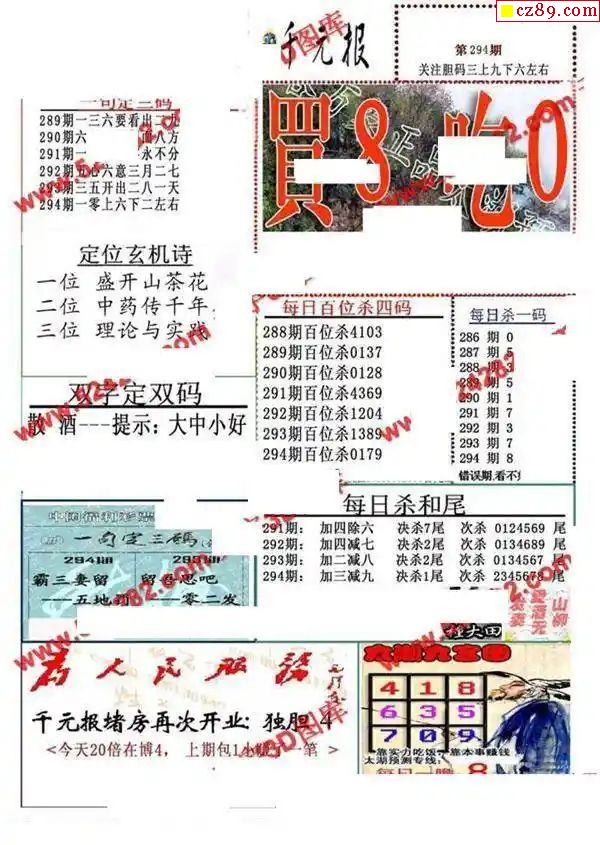 cz89.com
千元报
第294期
关注胆码三上九下六左右
買8吃0
一句定三码
289期一三六要看出二九
290期六 面八方
291期一 永不分
292期五心六意三月二七
293期三五开出二八一天
294期一零上六下二左右
定位玄机诗
一位 盛开山茶花
二位 中药传千年
三位 理论与实践
每日百位杀四码
288期百位杀4103
289期百位杀0137
290期百位杀0128
291期百位杀4369
292期百位杀1204
293期百位杀1389
294期百位杀0179
每日杀一码
286 期 0
287 期 5
288 期 3
289 期 5
290 期 1
291 期 7
292 期 3
293 期 7
294 期 8
错误期,看不
双字定双码
散 酒---提示:大中小好
每日杀和尾
291期: 加四除六 决杀7尾 次杀 0124569 尾
292期: 加四减七 决杀2尾 次杀 0134689 尾
293期: 加二减八 决杀2尾 次杀 0134567 尾
294期: 加三减九 决杀1尾 次杀 2345678 尾
中国福利彩票
一句定三码
294期
霸三妻留
留否思吧
零二发
为人民服务
千元报堵房再次开业:独胆 4
<今天20倍在博4, 上期包1小赚了一笔 >
太湖九宫图
4 1 8
6 3 5
7 0 9
靠实力吃饭,靠本事赚钱
太湖预测专线:
每日一胆 8